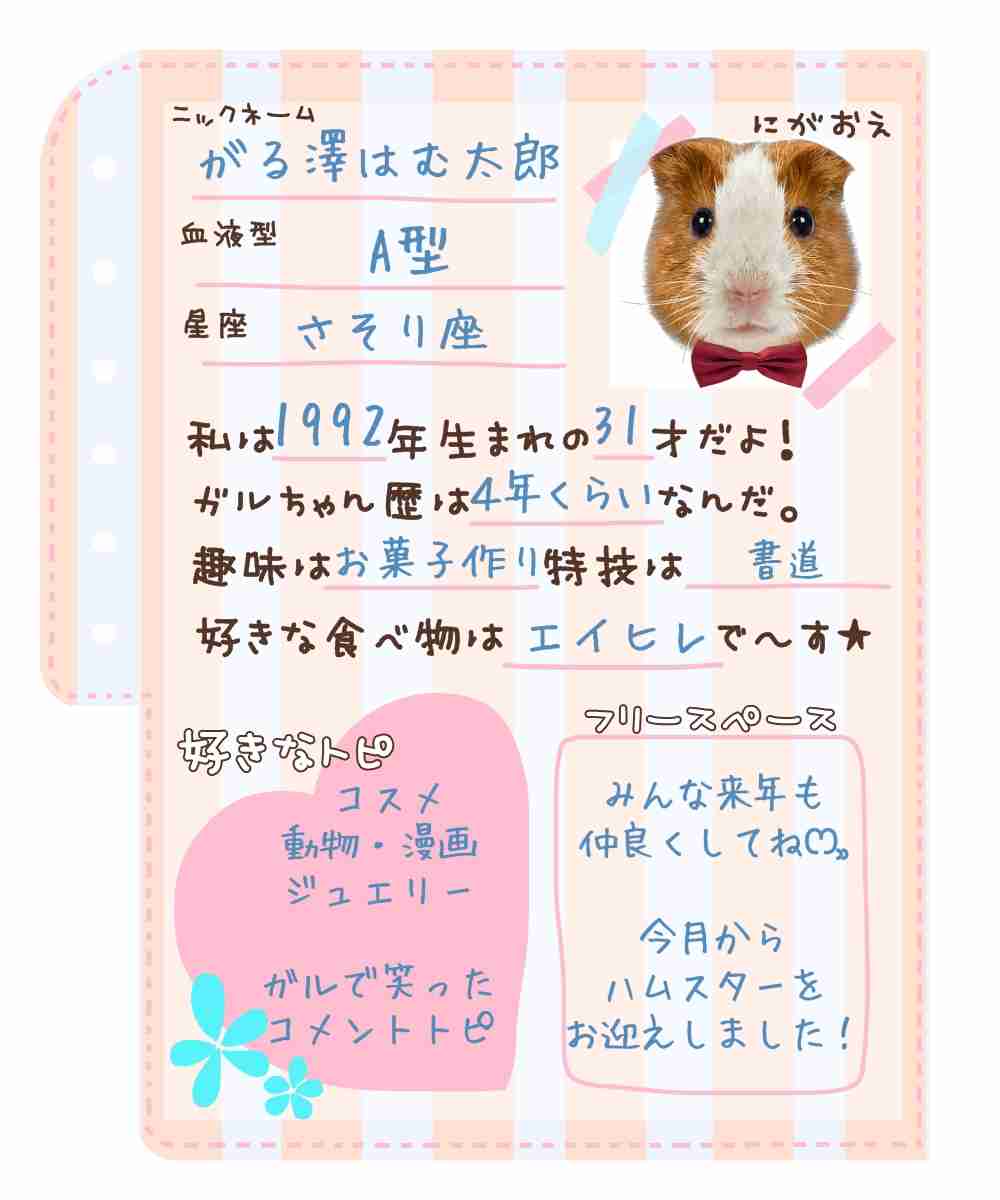 ニックネーム
がる澤はむ太郎
にがおえ
血液型
A型
星座
さそり座
私は1992年生まれの31才だよ!
ガルちゃん歴は4年くらいなんだ。
趣味はお菓子作り特技は書道
好きな食べ物はエイヒレで〜す★
好きなトピ
コスメ
動物・漫画
ジュエリー
ガルで笑った
コメントトピ
フリースペース
みんな来年も
仲良くしてね♡〟
今月から
ハムスターを
お迎えしました!